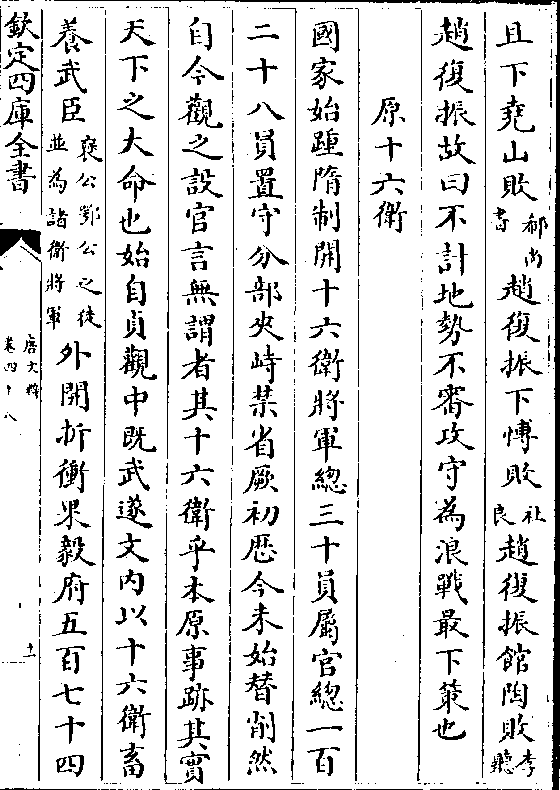 且下堯山敗郝尚書趙復振下慱敗杜良趙復振館陶敗李聽
趙復振故曰不計地勢不審攻守為浪戰最下策也
原十六衛
國家始踵隋制開十六衛將軍總三十員屬官總一百
二十八員置守分部夾峙禁省厥初歴今未始替削然
自今觀之設官言無謂者其十六衛乎本原事跡其實
天下之大命也始自貞觀中既武遂文内以十六衛畜
養武臣襃公鄂公之徒並為諸衛將軍外開折衝果毅府五百七十四
欽定四庫全書
唐文粹
卷四十八
十一